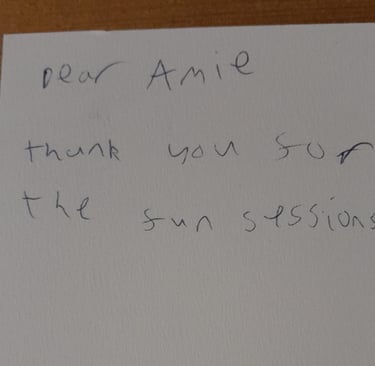 Dear Amie
thank you for
the fun sessions